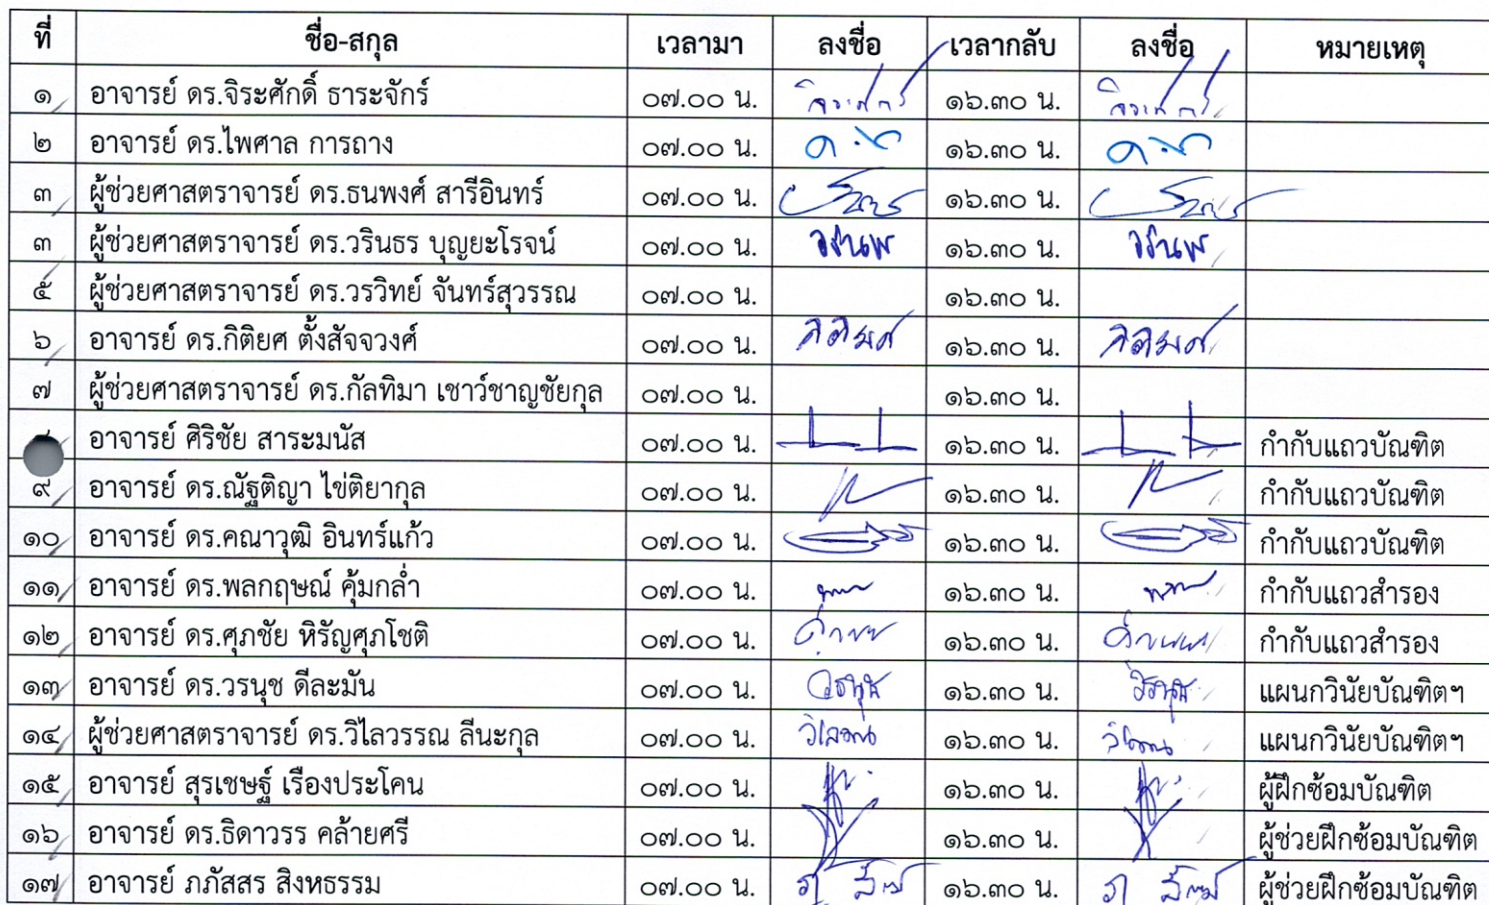 ที่ ชื่อ-สกุล เวลามา ลงชื่อ เวลากลับ ลงชื่อ หมายเหตุ
๑ อาจารย์ ดร.จิระศักดิ์ ธาระจักร์ ๐๗.๐๐ น. ๑๖.๓๐ น.
๒ อาจารย์ ดร.ไพศาล การถาง ๐๗.๐๐ น. ๑๖.๓๐ น.
๓ ผู้ช่วยศาสตราจารย์ ดร.ธนพงศ์ สารีอินทร์ ๐๗.๐๐ น. ๑๖.๓๐ น.
๓ ผู้ช่วยศาสตราจารย์ ดร.วรินธร บุญยะโรจน์ ๐๗.๐๐ น. ๑๖.๓๐ น.
๕ ผู้ช่วยศาสตราจารย์ ดร.วรวิทย์ จันทร์สุวรรณ ๐๗.๐๐ น. ๑๖.๓๐ น.
๖ อาจารย์ ดร.กิติยศ ตั้งสัจจวงศ์ ๐๗.๐๐ น. ๑๖.๓๐ น.
๗ ผู้ช่วยศาสตราจารย์ ดร.กัลทิมา เชาว์ชาญชัยกุล ๐๗.๐๐ น. ๑๖.๓๐ น.
อาจารย์ ศิริชัย สาระมนัส ๐๗.๐๐ น. ๑๖.๓๐ น. กำกับแถวบัณฑิต
๙ อาจารย์ ดร.ณัฐติญา ไข่ติยากุล ๐๗.๐๐ น. ๑๖.๓๐ น. กำกับแถวบัณฑิต
๑๐ อาจารย์ ดร.คณาวุฒิ อินทร์แก้ว ๐๗.๐๐ น. ๑๖.๓๐ น. กำกับแถวบัณฑิต
๑๑ อาจารย์ ดร.พลกฤษณ์ คุ้มกล่ำ ๐๗.๐๐ น. ๑๖.๓๐ น. กำกับแถวสำรอง
๑๒ อาจารย์ ดร.ศุภชัย หิรัญศุภโชติ ๐๗.๐๐ น. ๑๖.๓๐ น. กำกับแถวสำรอง
๑๓ อาจารย์ ดร.วรนุช ดีละมัน ๐๗.๐๐ น. วรนุช ๑๖.๓๐ น. วรนุช แผนกวินัยบัณฑิตฯ
๑๔ ผู้ช่วยศาสตราจารย์ ดร.วิไลวรรณ ลีนะกุล ๐๗.๐๐ น. ๑๖.๓๐ น. แผนกวินัยบัณฑิตฯ
๑๕ อาจารย์ สุรเชษฐ์ เรืองประโคน ๐๗.๐๐ น. ๑๖.๓๐ น. ผู้ฝึกซ้อมบัณฑิต
๑๖ อาจารย์ ดร.ธิดาวรร คล้ายศรี ๐๗.๐๐ น. ๑๖.๓๐ น. ผู้ช่วยฝึกซ้อมบัณฑิต
๑๗ อาจารย์ ภภัสสร สิงหธรรม ๐๗.๐๐ น. ๑๖.๓๐ น. ผู้ช่วยฝึกซ้อมบัณฑิต